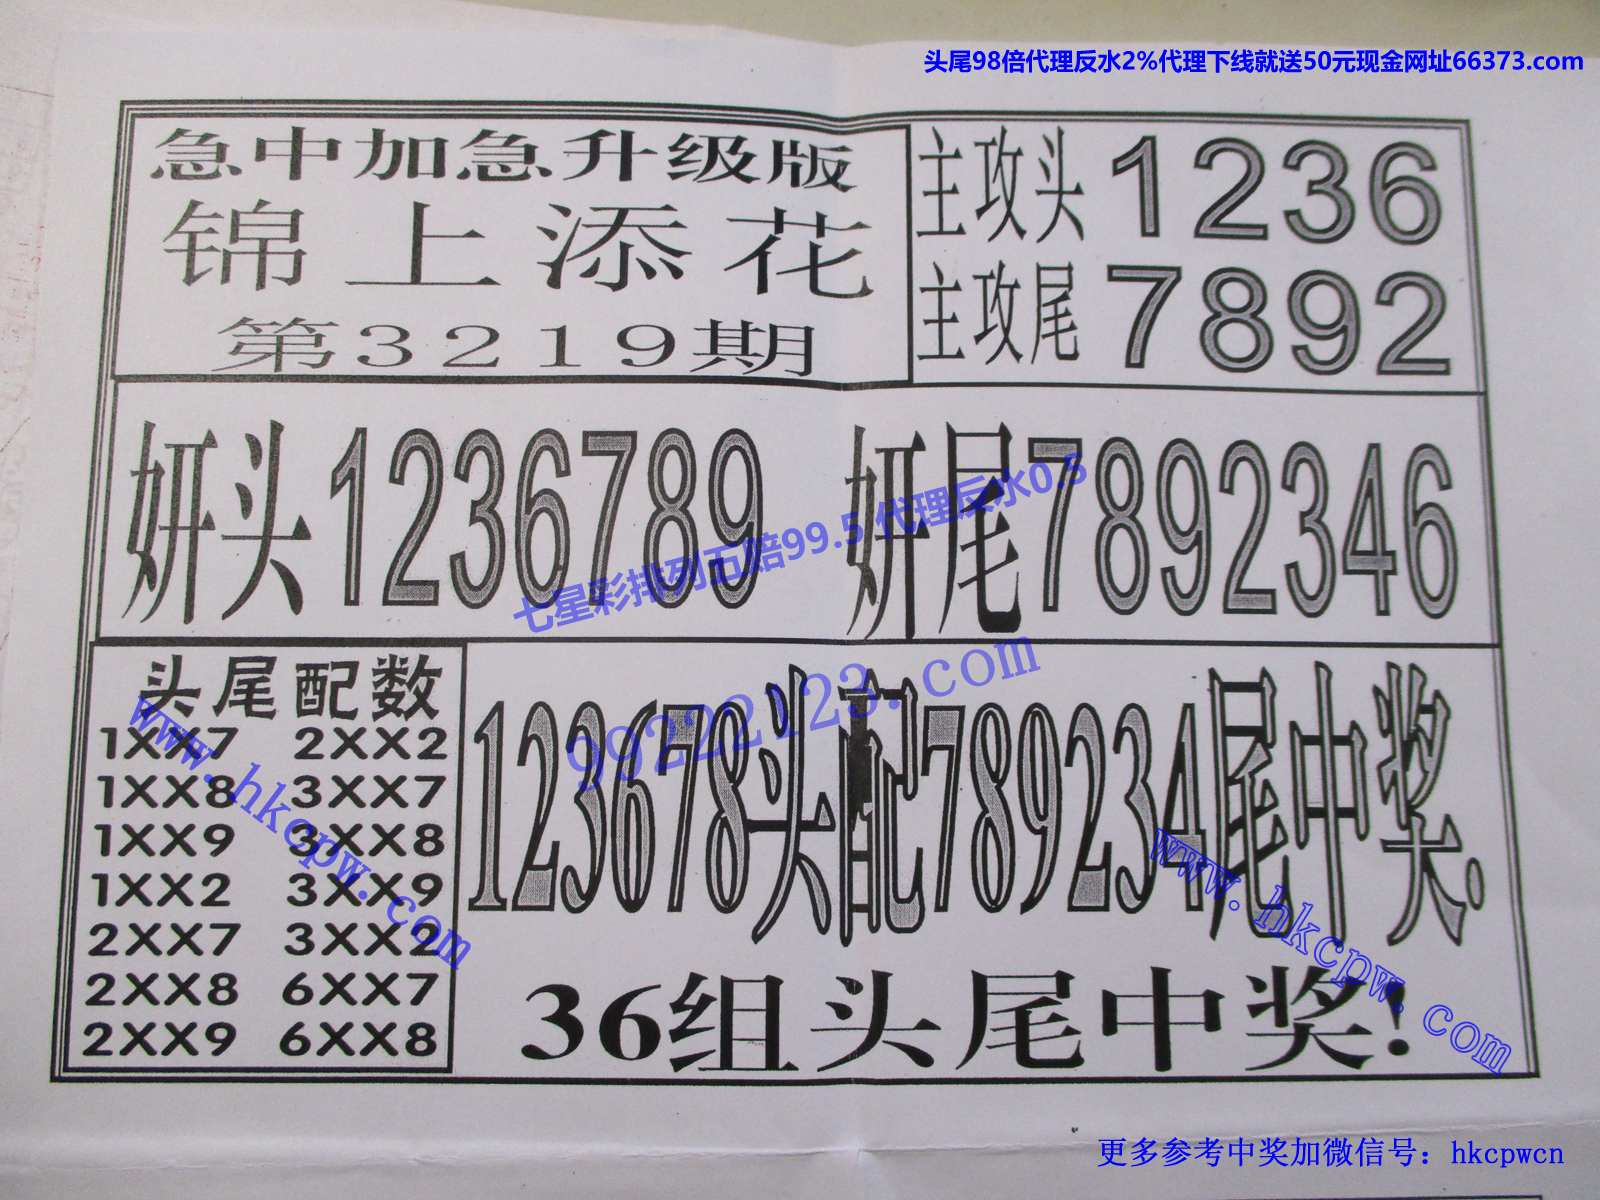 头尾98倍代理反水2%代理下线就送50元现金网址66373.com
急中加急升级版
锦上添花
第3219期
主攻头1236
主攻尾7892
妍头1236789
妍尾7892346
七星彩排列五赔99.5 代理反水0.5
99222123.com
头尾配数
1XX7 2XX2
1XX8 3XX7
1XX9 3XX8
1XX2 3XX9
2XX7 3XX2
2XX8 6XX7
2XX9 6XX8
www.hkcpw.com
123678头配789234尾中奖.
www.hkcpw.com
36组头尾中奖!
更多参考中奖加微信号：hkcpwcn